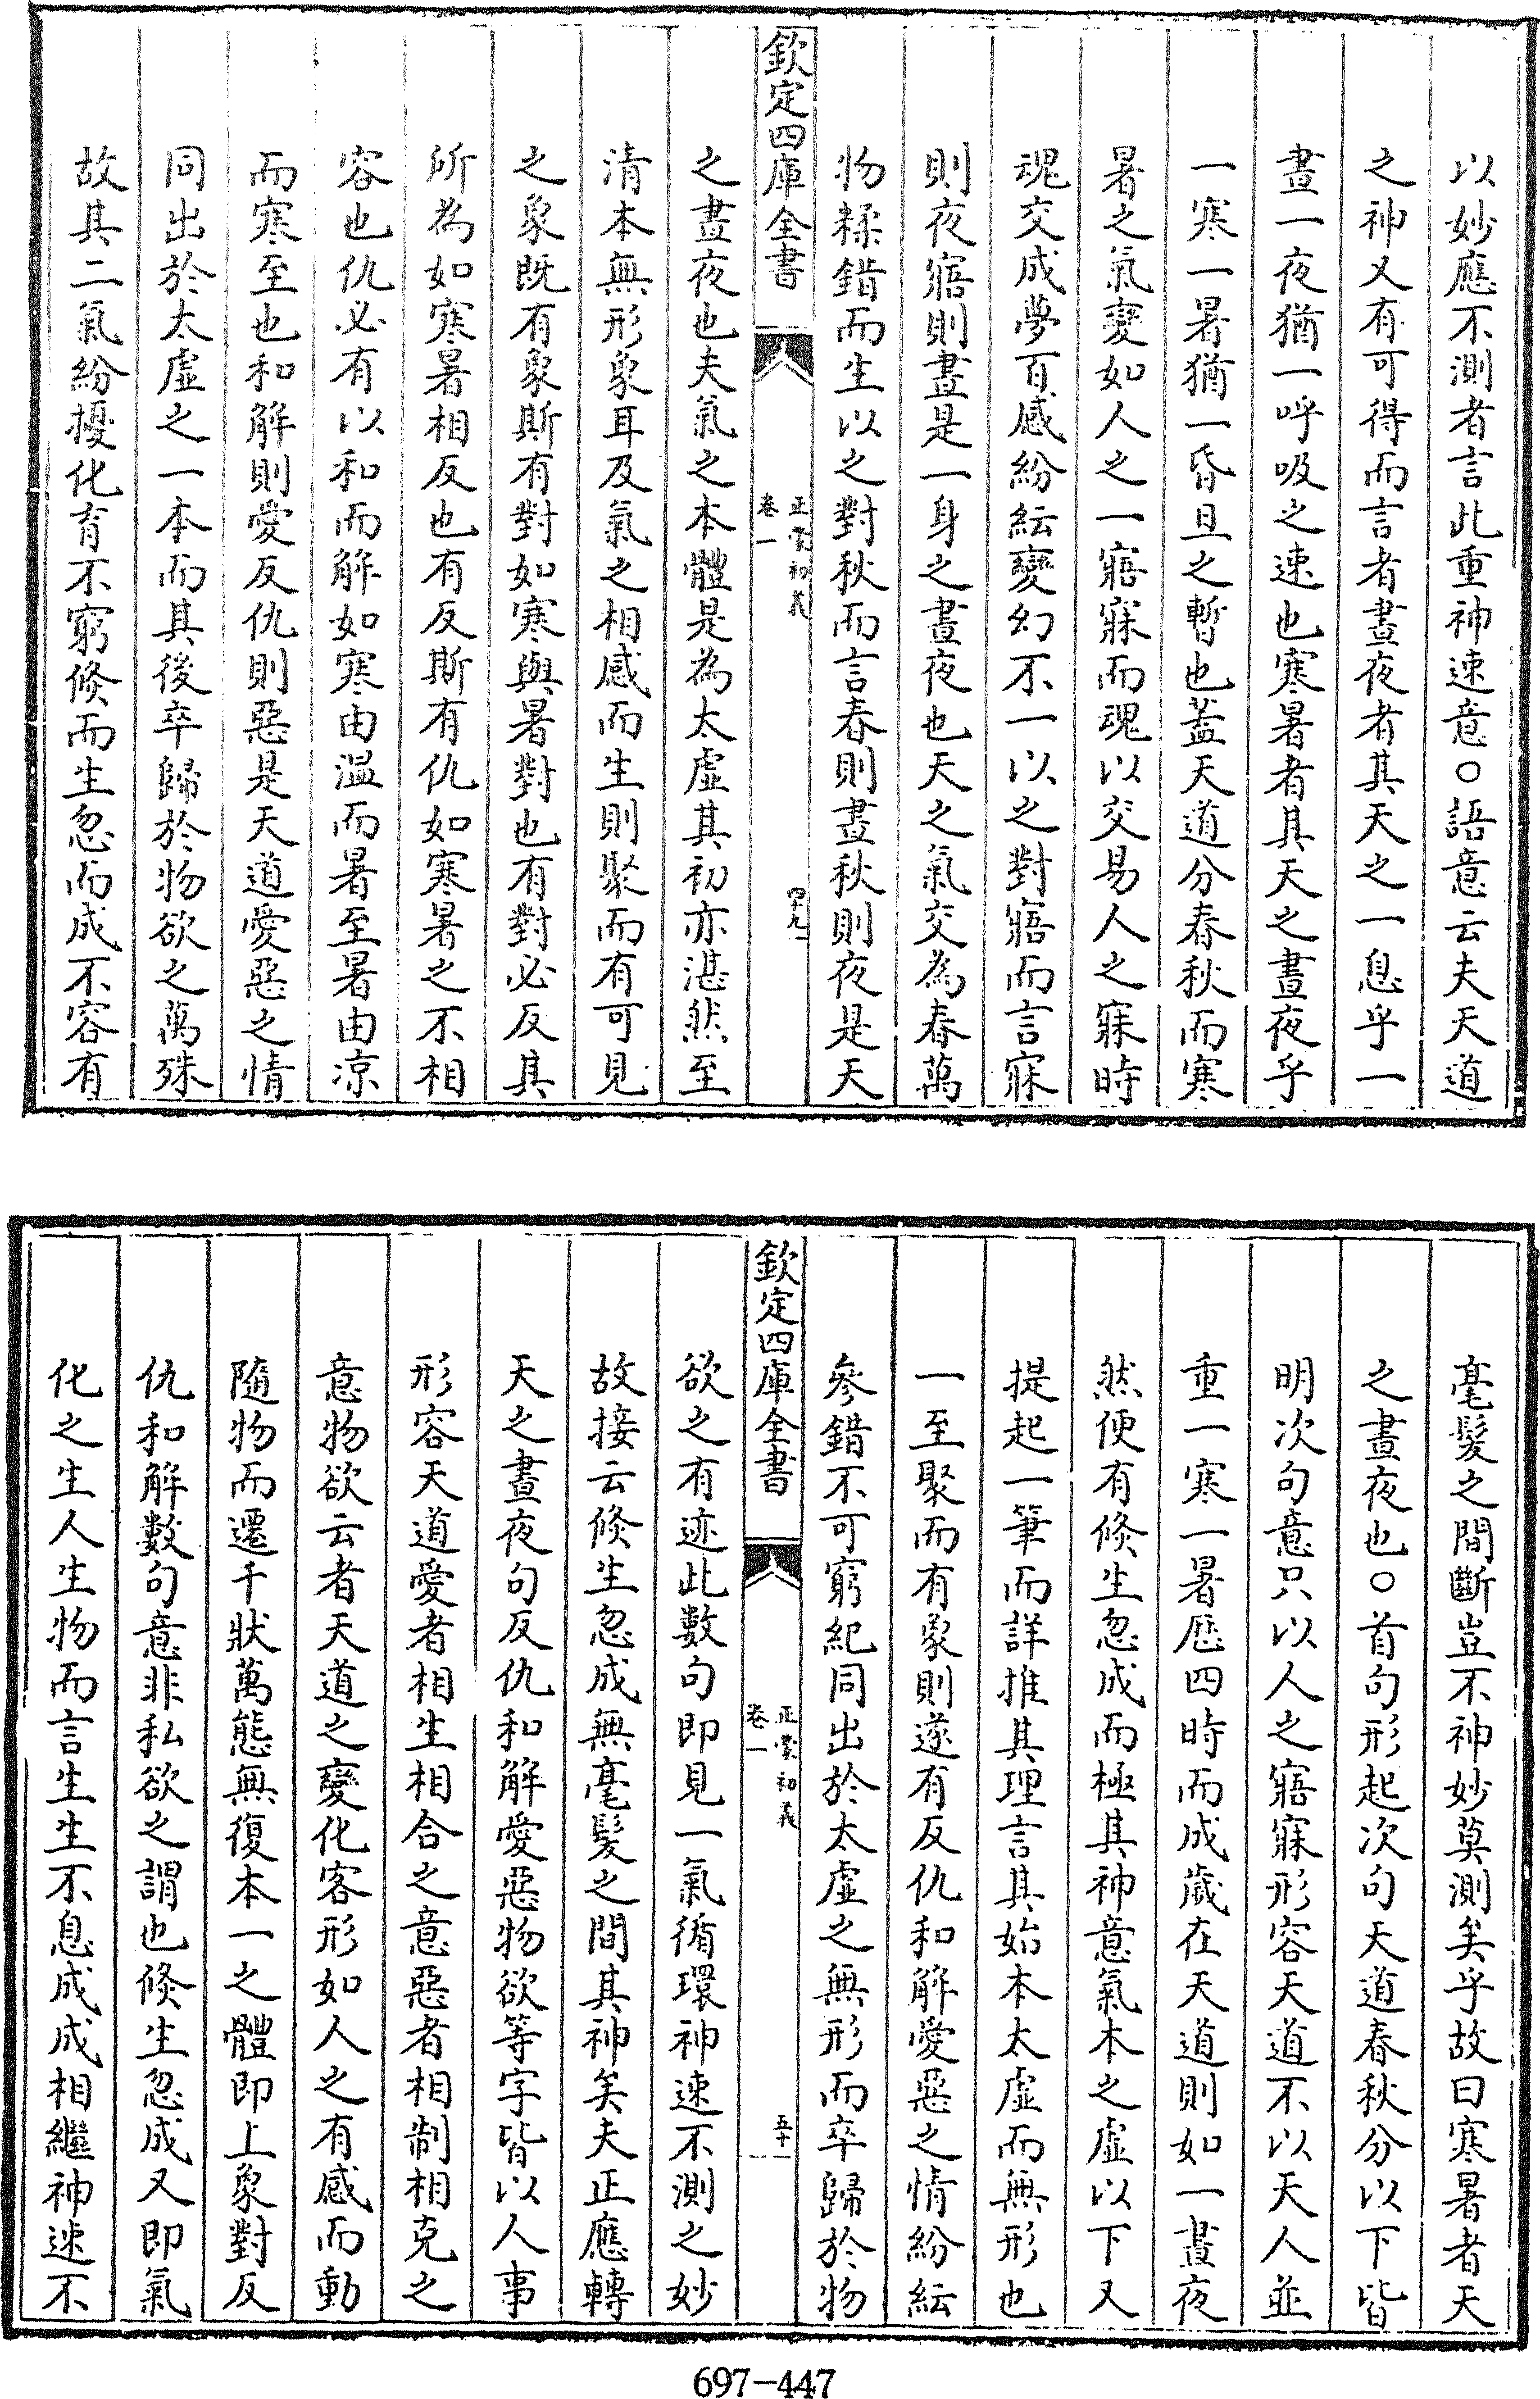 以妙應不測者言此重神速意○語意云夫天道
之神又有可得而言者晝夜者其天之一息乎一
晝一夜猶一呼吸之速也寒暑者其天之晝夜乎
一寒一暑猶一昏旦之暫也蓋天道分春秋而寒
暑之氣變如人之一寤寐而魂以交易人之寐時
魂交成夢百感紛紜變幻不一以之對寤而言寐
則夜寤則晝是一身之晝夜也天之氣交為春萬
物糅錯而生以之對秋而言春則晝秋則夜是天
欽定四庫全書
正蒙初義
卷一
四十九
之晝夜也夫氣之本體是為太虛其初亦湛然至
清本無形象耳及氣之相感而生則聚而有可見
之象既有象斯有對如寒與暑對也有對必反其
所為如寒暑相反也有反斯有仇如寒暑之不相
容也仇必有以和而解如寒由溫而暑至暑由凉
而寒至也和解則愛反仇則惡是天道愛惡之情
同出於太虛之一本而其後卒歸於物欲之萬殊
故其二氣紛擾化育不窮倐而生忽而成不容有
毫髮之間斷豈不神妙莫測矣乎故曰寒暑者天
之晝夜也○首句形起次句天道春秋分以下皆
明次句意只以人之寤寐形容天道不以天人並
重一寒一暑歷四時而成歲在天道則如一晝夜
然便有倐生忽成而極其神意氣本之虛以下又
提起一筆而詳推其理言其始本太虛而無形也
一至聚而有象則遂有反仇和解愛惡之情紛紜
參錯不可窮紀同出於太虛之無形而卒歸於物
欽定四庫全書
正蒙初義
卷一
五十
欲之有迹此數句即見一氣循環神速不測之妙
故接云倐生忽成無毫髮之間其神矣夫正應轉
天之晝夜句反仇和解愛惡物欲等字皆以人事
形容天道愛者相生相合之意惡者相制相克之
意物欲云者天道之變化客形如人之有感而動
隨物而遷千狀萬態無復本一之體即上象對反
仇和解數句意非私欲之謂也倐生忽成又即氣
化之生人生物而言生生不息成成相繼神速不
697-447